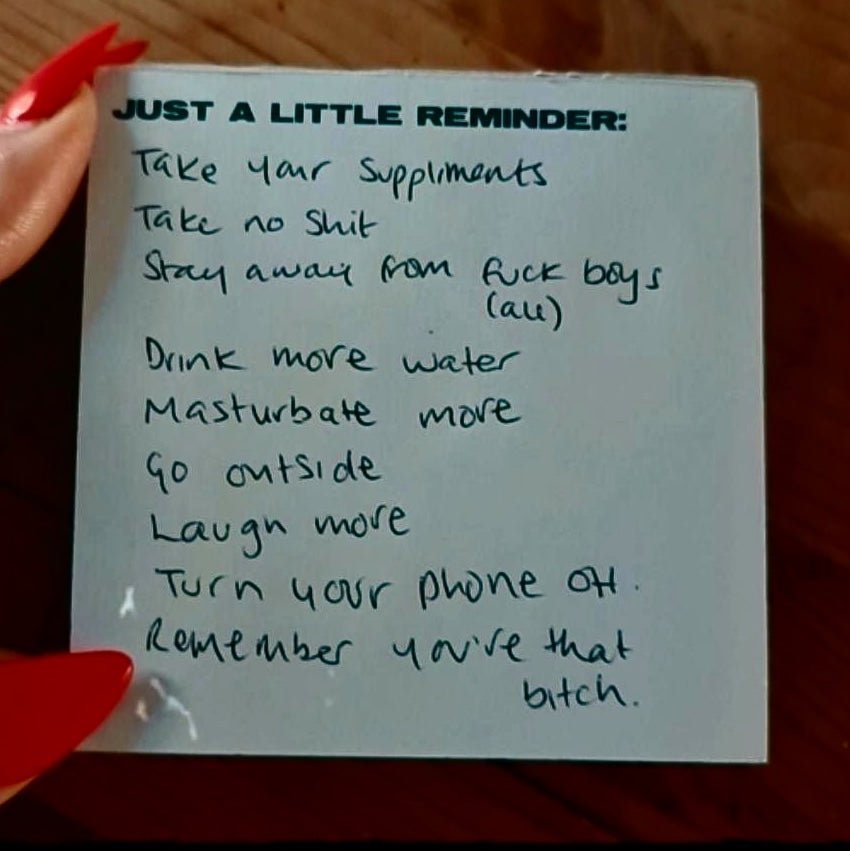 JUST A LITTLE REMINDER:
Take your Suppliments
Take no Shit
Stay away from fuck boys
(all)
Drink more water
Masturbate more
Go outside
Laugh more
Turn your phone off.
Remember you're that
bitch.